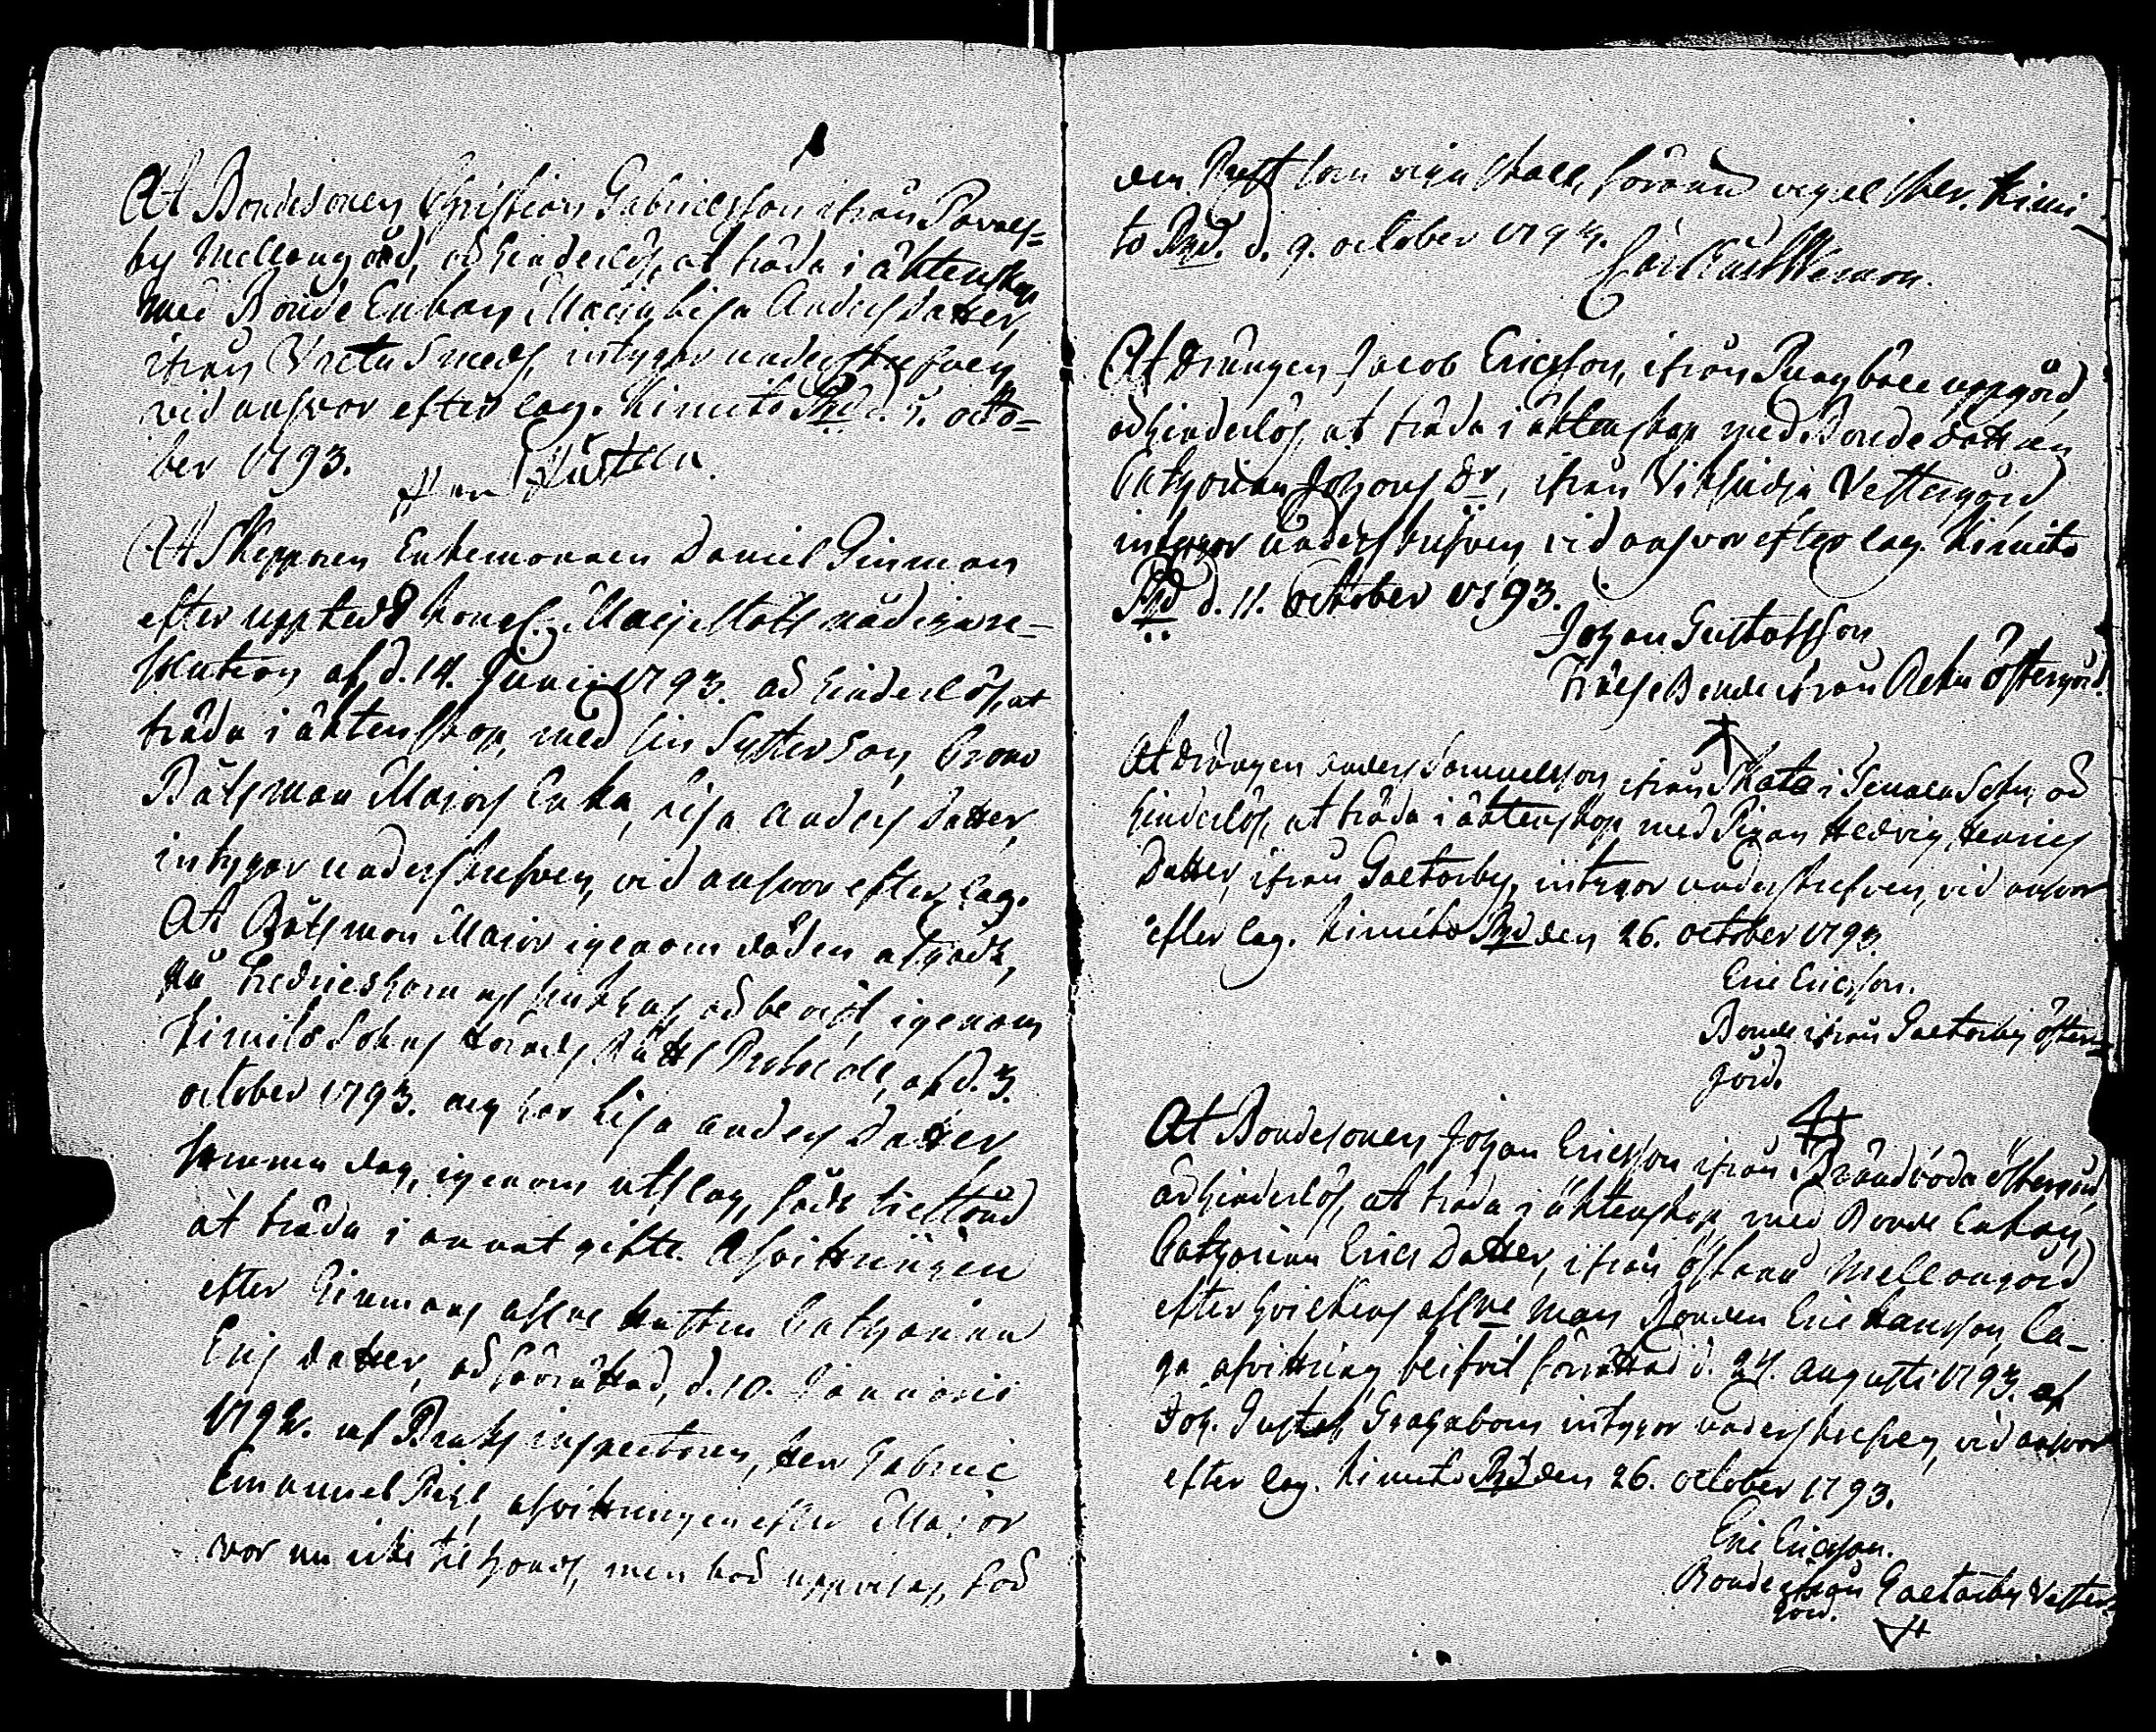 At Bondesonen Christian Gabrielsson ifrån Pavals=
by Mellangård, är hinderlös, at träda i äktenskap
med Bonde Enkan Maria Lisa Anders Datter,
ifrån Vreta Smeds, intygar underskrifven
vid answar efter lag. Kimito Pgd d. 5. octo=
ber 1793.
At Skepparen Enkemannen Daniel Ginman
efter uppted kongl. Maijestäts nådiga re=
solution af d. 14. Junii 1793. är hinderlös, at
träda i äktenskap, med sin Systerson, Crono
Båtsman Majors Enka, Lisa Anders Datter,
intygar underskrifven, vid answar efter lag.
At Båtsman Major igenom döden afgådt,
på Fredricshamns sjukhus är bevist igenom
Kimito Sokns Härads Rätts Protocoll, af d. 3.
october 1793. och har Lisa Anders Datter,
samma dag, igenom utslag, fådt tilstånd
at träda i annat gifte. Afvittringen
efter Ginmans aflne hustru Catharina
Erics Datter, är förrättad, d. 10. Januarii
1792. af Bruks inspectoren, Herr Gabriel
Emanuel Pihl, afvittringen efter Major
var nu icke til hands, men bör uppvisas, för
den Prest som viga skall, förän vigsel sker. Kimi
to Pgd. d. 9. october 1793.
At drängen Jacob Ericsson, ifrån Pungböle uppgård
är hinderlös, at träda i äktenskap med Bonde dottren
Catharina Johans Dr, ifrån Viksvidja Vestergård
intygar underskrifven, vid answar efter lag. Kimito
Pgd d. 11. October 1793.
Johan Gustafsson
Frälse Bonde ifrån Östergård.
At drängen Anders Samuelsson ifrån Skata i Tenala Sokn, är
hinderlös, at träda i äktenskap med Pigan Hedvig Henrics
Datter, ifrån Galtarby, intygar underskrifven, vid answar
efter lag. Kimito Pgd den 26. october 1793.
Eric Ericsson.
Bonde ifrån Galtarby öster=
gård.
At Bondesonen Johan Ericsson ifrån Brändboda östergård,
är hinderlös, at träda i äktenskap, med Bonde Enkan,
Catharina Erics Datter, ifrån Östanå Mellangård
efter hvilkens aflne man Bonden Eric Hansson, la=
ga afvittring blifvit förrättad d. 27. augusti 1793. af
Joh. Gustaf intygar underskrifven, vid answar
efter lag. Kimito Pgd den 26. october 1793.
Eric Ericsson.
Bonde ifrån Galtarby Vester=
gård.